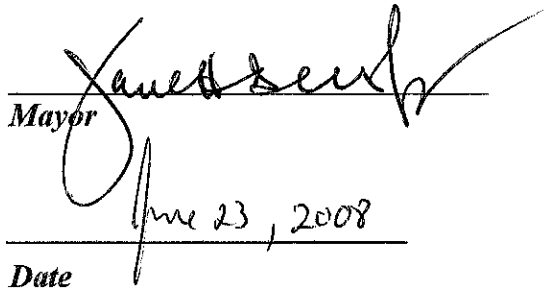 Mayor
June 23, 2008
Date